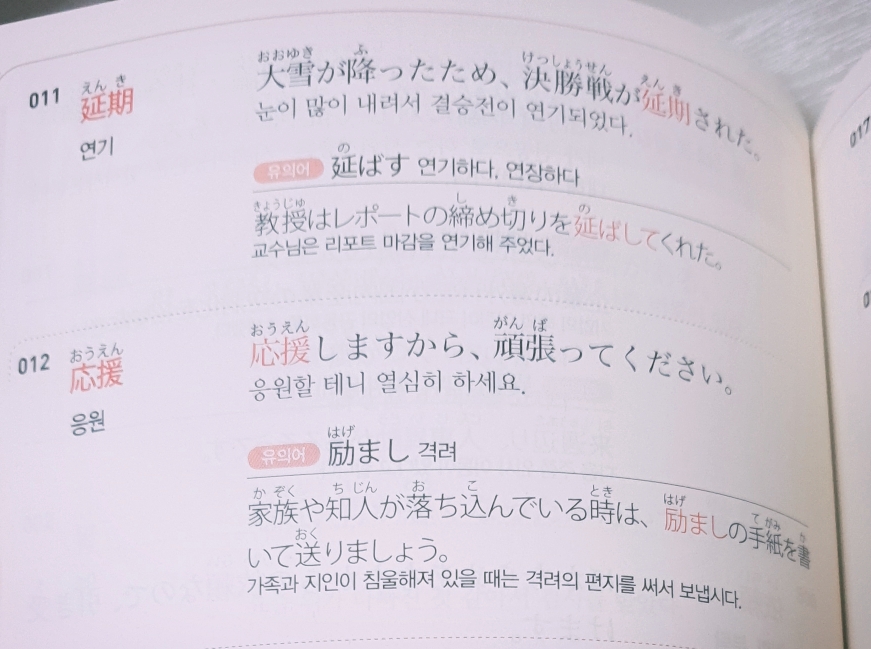 011
えんき
延期
연기
おおゆき ふ けっしょうせん えんき
大雪が降ったため、決勝戦が延期された。
눈이 많이 내려서 결승전이 연기되었다.
の
유의어 延ばす 연기하다, 연장하다
きょうじゅ し き の
教授はレポートの締め切りを延ばしてくれた。
교수님은 리포트 마감을 연기해 주었다.
012
おうえん
応援
응원
おうえん がんば
応援しますから、頑張ってください。
응원할 테니 열심히 하세요.
はげ
유의어 励まし 격려
かぞく ちじん お こ とき はげ てがみ か
家族や知人が落ち込んでいる時は、励ましの手紙を書
おく
いて送りましょう。
가족과 지인이 침울해져 있을 때는 격려의 편지를 써서 보냅시다.
017